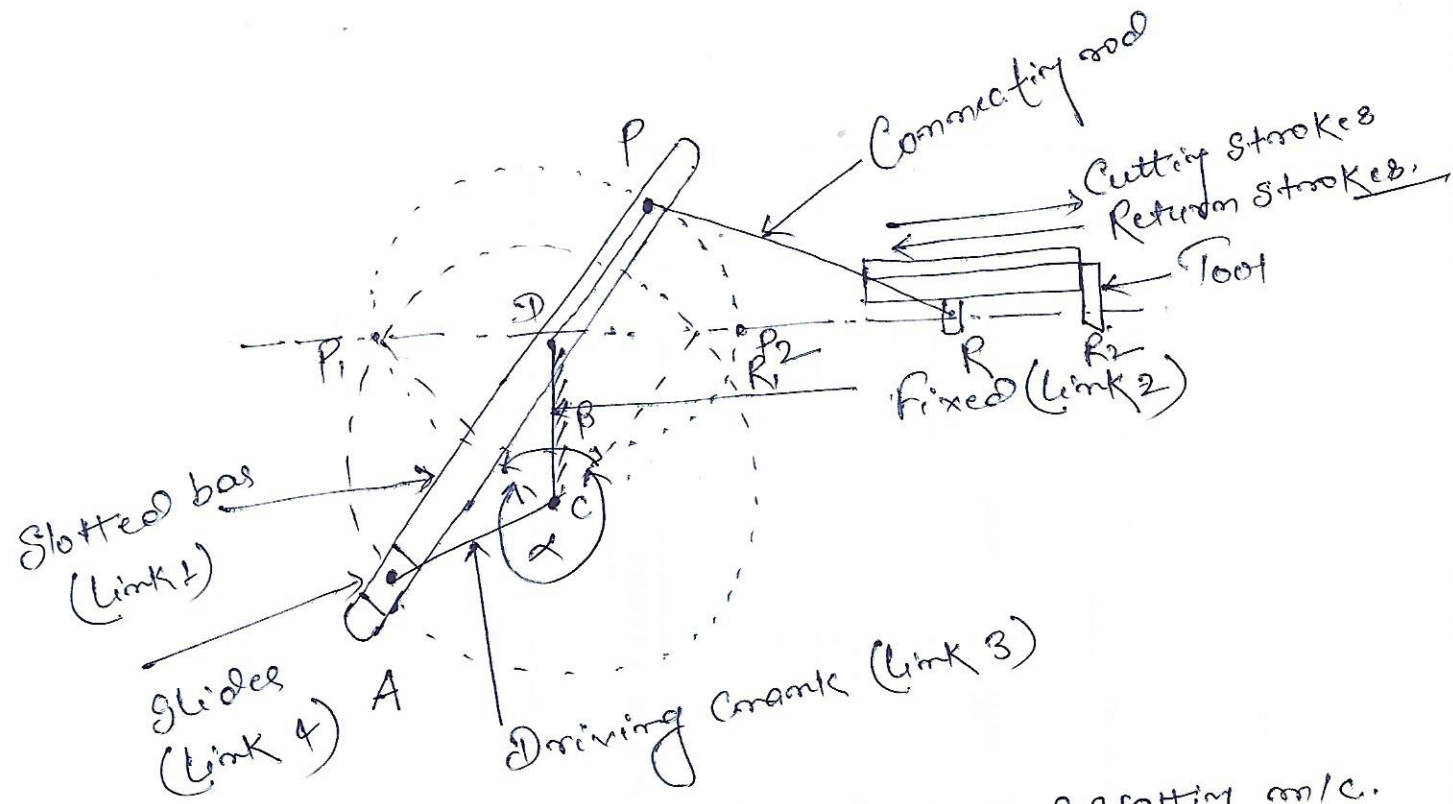 P
Connecting rod
Cutting Strokes
Return Strokes.
Tool
D
P1
P2
R1
R
R2
Fixed (Link 2)
B
C
α
Slotted bar
(Link 1)
Slider
(Link 4)
A
Driving Crank (Link 3)
m/c.